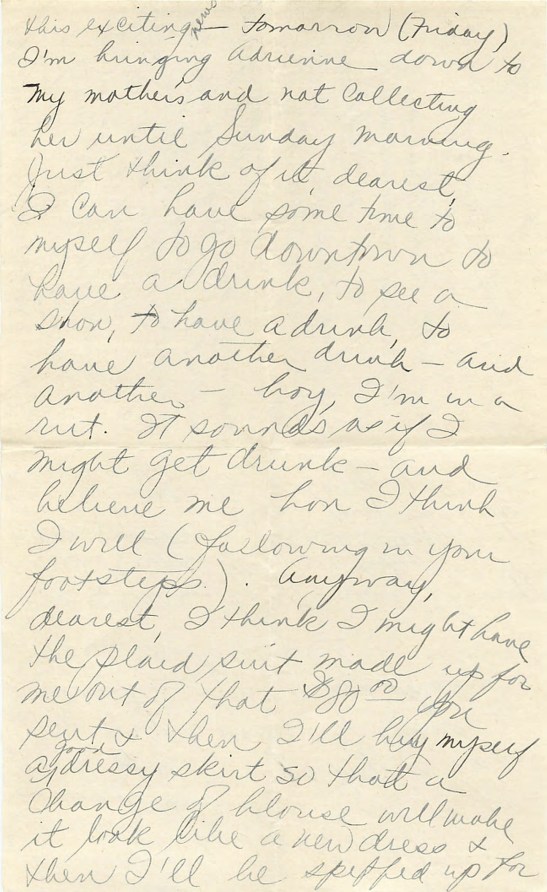 this exciting news — tomorrow (Friday)
I'm bringing Adrienne down to
my mother's and not collecting
her until Sunday morning.
Just think of it, dearest,
I can have some time to
myself to go downtown to
have a drink, to see a
show, to have a drink, to
have another drink — and
another — boy, I'm in a
rut. It sounds as if I
might get drunk — and
believe me hon I think
I will (following in your
footsteps). Anyway,
dearest, I think I might have
the plaid suit made up for
me out of that $80.00 you
sent & then I'll buy myself
a good dressy skirt so that a
change of blouse will make
it look like a new dress &
then I'll be spiffed up for